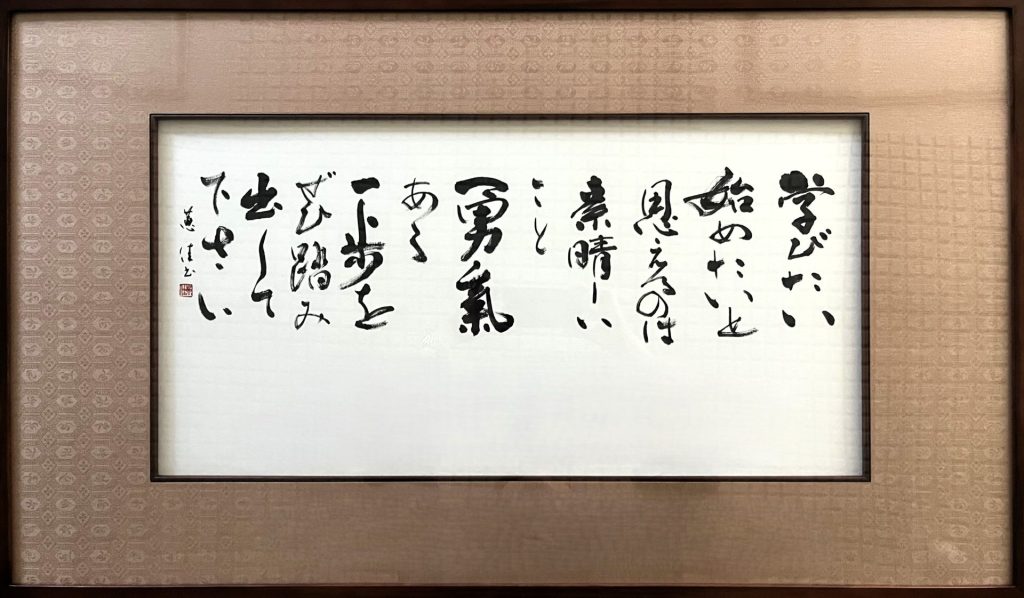 学びたい
始めたいと
思えるのは
素晴しい
こと
勇氣
ある
一歩を
ぜひ踏み
出して
下さい
蕙佳書